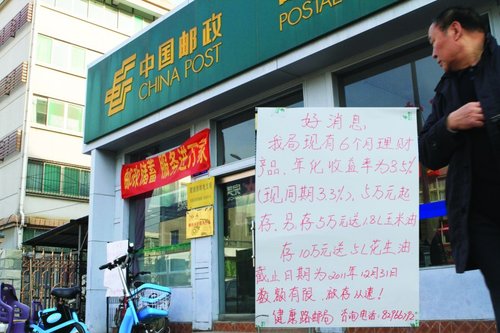 中国邮政
CHINA POST
POSTAL
邮政储蓄 服务进万家
好消息
我局现有6个月理财
产品、年化收益率为3.5%
(现同期3.3%)、5万元起
存、另存5万元送1.8L玉米油
存10万元送5L花生油
截止日期为2011年12月31日
数额有限、欲存从速!
健康路邮局